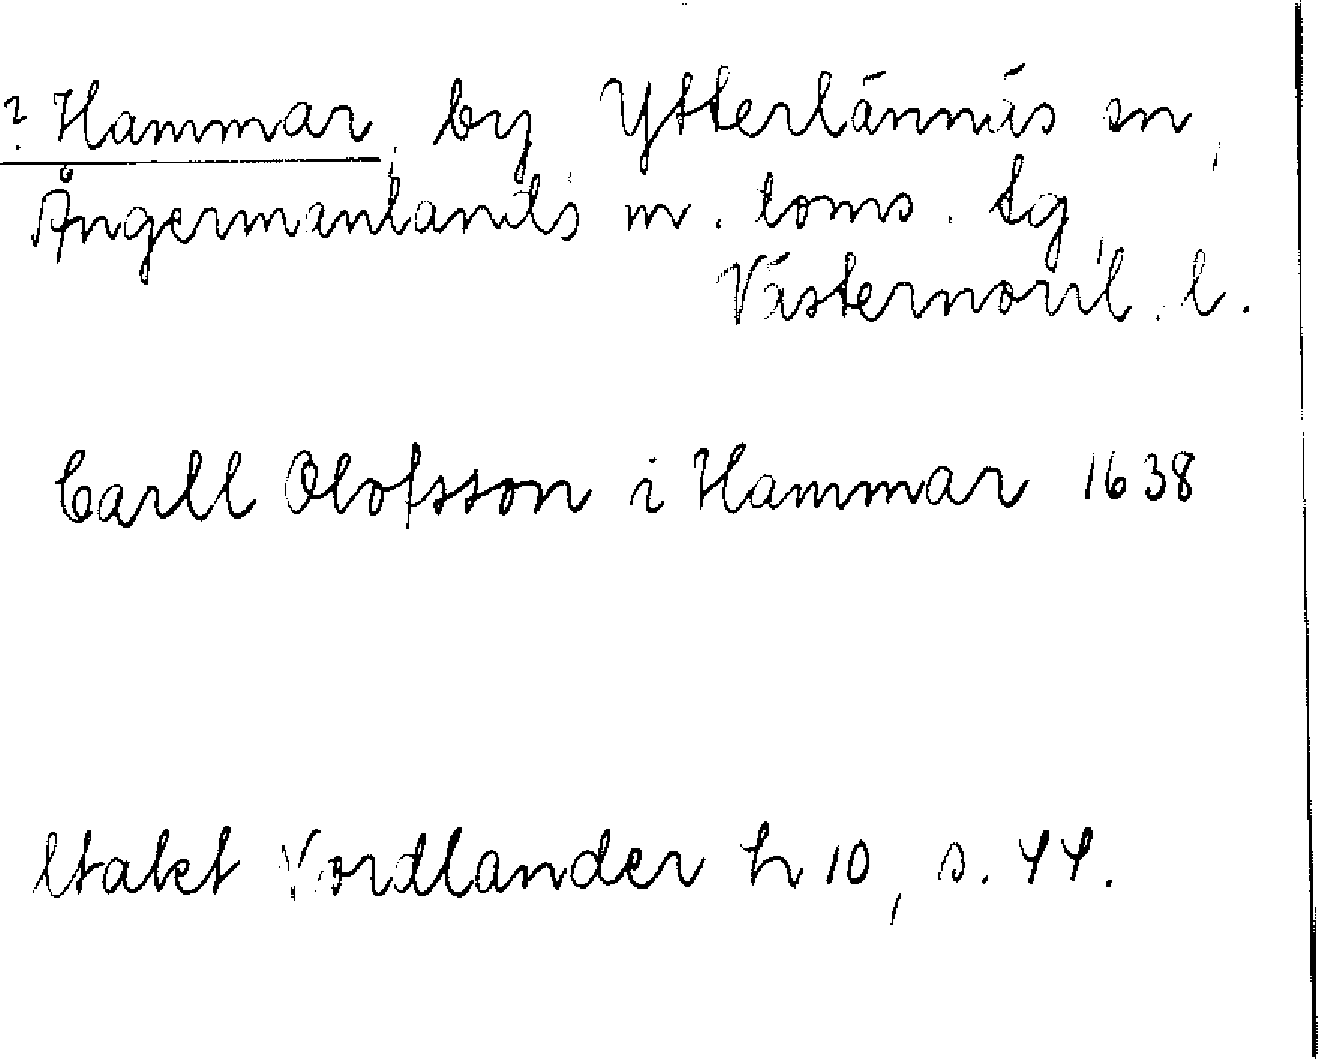 ? Hammar, by Ytterlännäs sn,
Ångermanlands m. doms. tg,
Västernorrl. l.
Carll Olofsson i Hammar 1638
Utdet Nordlander h 10, s. 44.